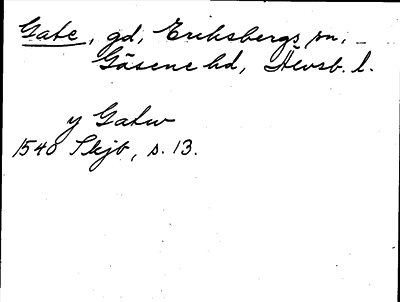 Gate, gd, Eriksbergs sn,
Gäsene hd, Älvsb. l.
y Gatw
1540 Skjb, s. 13.